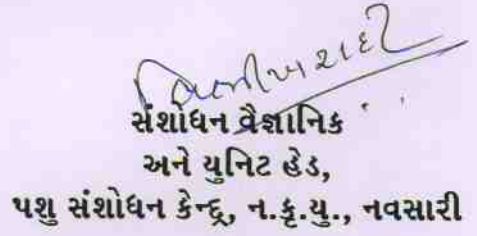 સંશોધન વૈજ્ઞાનિક
અને યુનિટ હેડ,
પશુ સંશોધન કેન્દ્ર, ન.કૃ.યુ., નવસારી